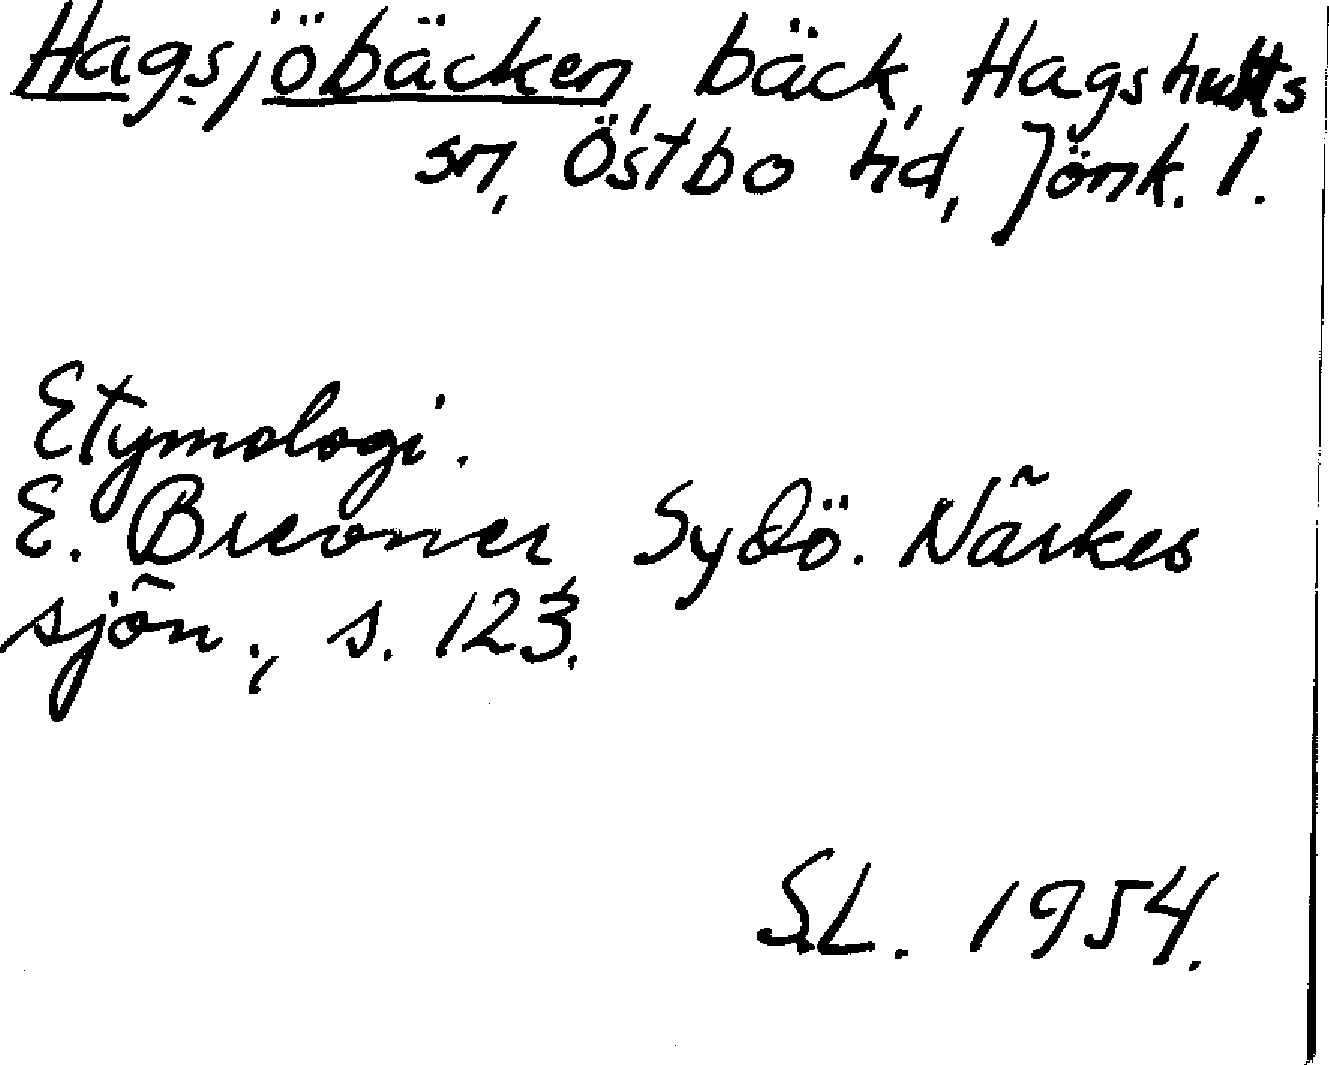 Hagsjöbäcken, bäck, Hagshults
sn, Östbo hd, Jönk. l.
Etymologi.
E. Brevner, Sydö. Närkes
sjön., s. 123.
S.L. 1954.